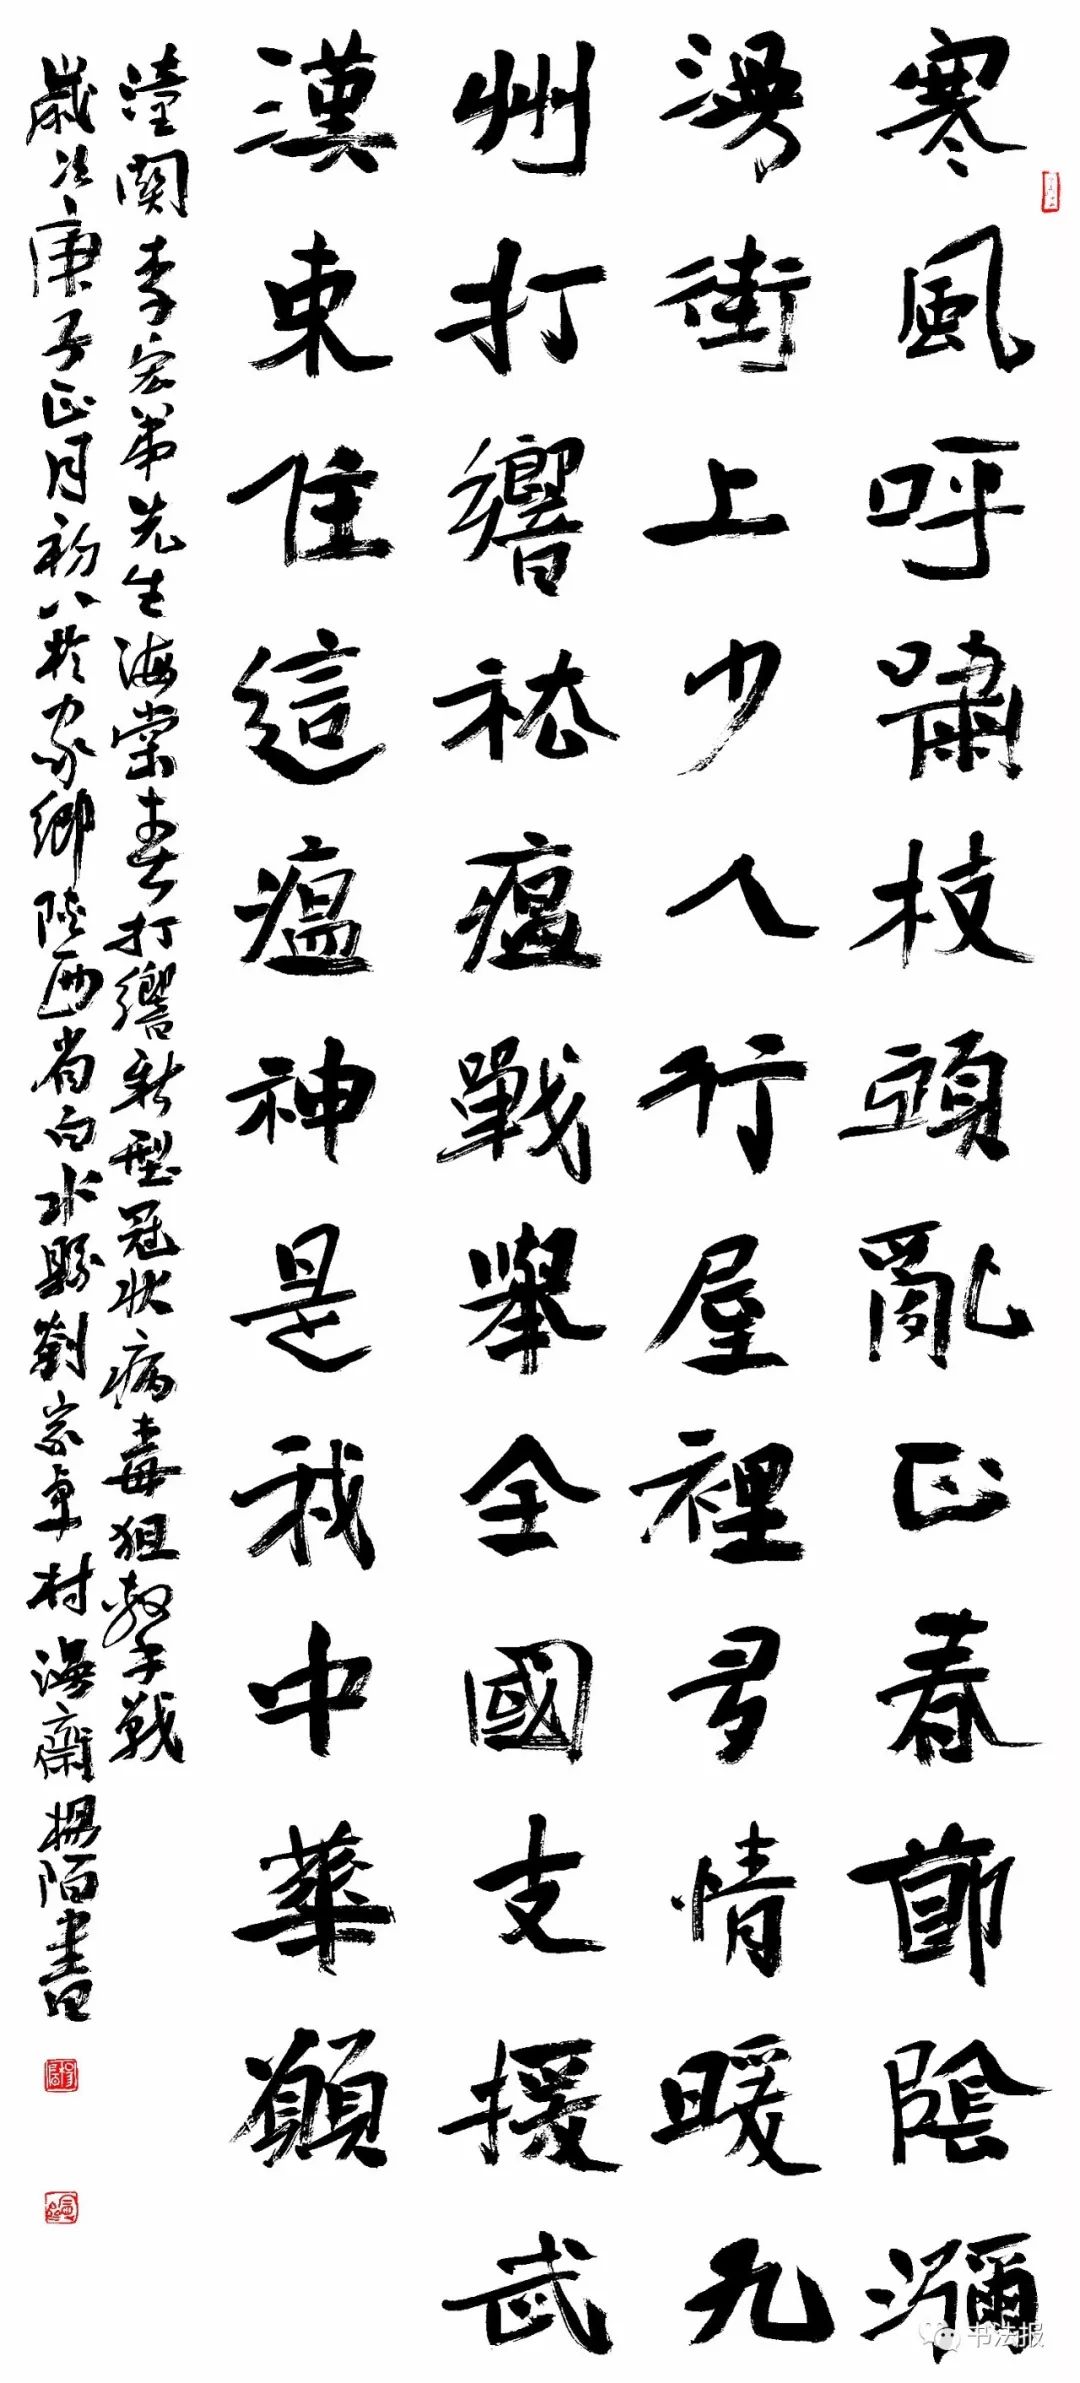 寒風呼嘯枝頭亂正春節陰瀰
漫街上少人行屋裡多情暖九
州打響祛瘟戰舉全國支援武
漢束住這瘟神是我中華願
潼關李宏弟先生海棠春打響新型冠狀病毒狙擊戰
歲次庚子正月初八於家鄉陝西省白水縣劉家卓村海齋楊陌書
书法报